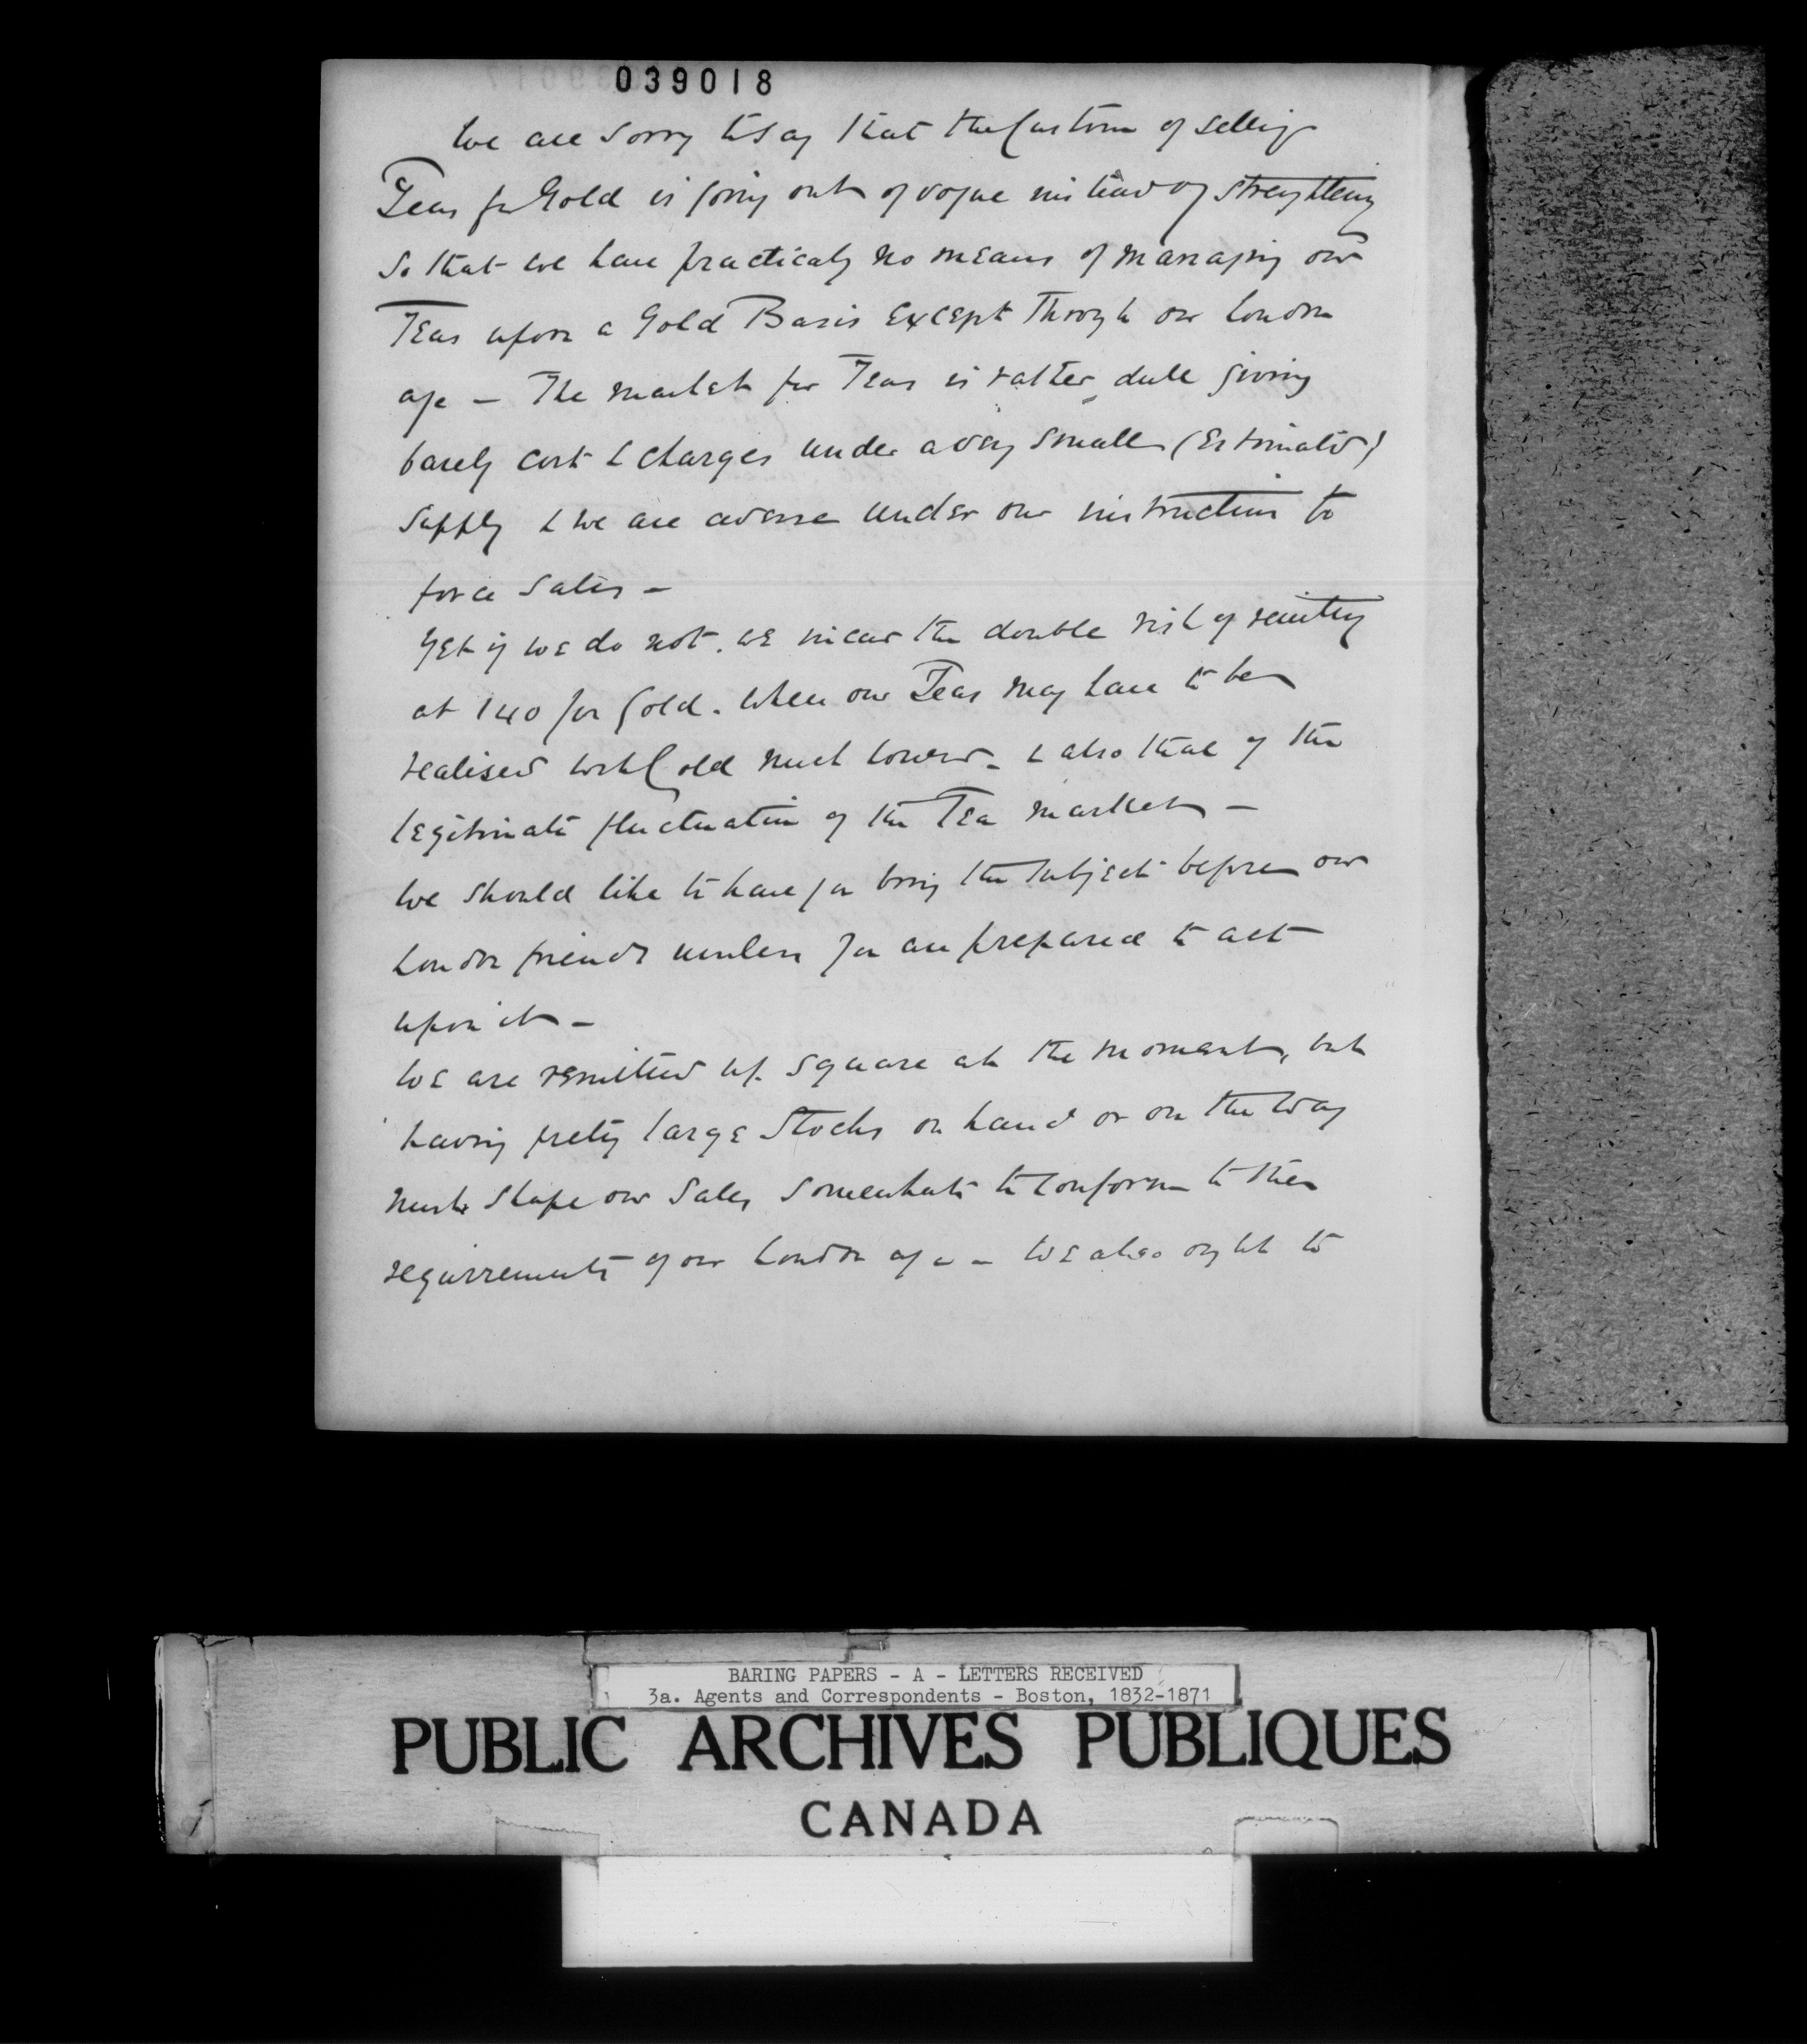 039018
We are sorry to say that the Custom of selling
Teas for Gold is going out of vogue instead of strengthening
So that we have practicaly no means of managing our
Teas upon a Gold Basis Except Through our London
a/c — The market for Teas is rather dull giving
barely cost & charges under a very small (Estimated)
Supply & we are averse under our instructions to
force Sales —
Yet if we do not. we incur the double risk of remitting
at 140 for Gold. When our Teas may have to be
realised with Gold much lower — & also that of the
legitimate fluctuation of the Tea market —
We should like to have you bring the subject before our
London friends unless you are prepared to act
upon it —
We are remitted up square at the moment, but
having prety large Stocks on hand or on the way
must shape our Sales somewhat to conform to the
requirements of our London a/c — We also ought to
BARING PAPERS - A - LETTERS RECEIVED
3a. Agents and Correspondents - Boston, 1832-1871
PUBLIC ARCHIVES PUBLIQUES
CANADA